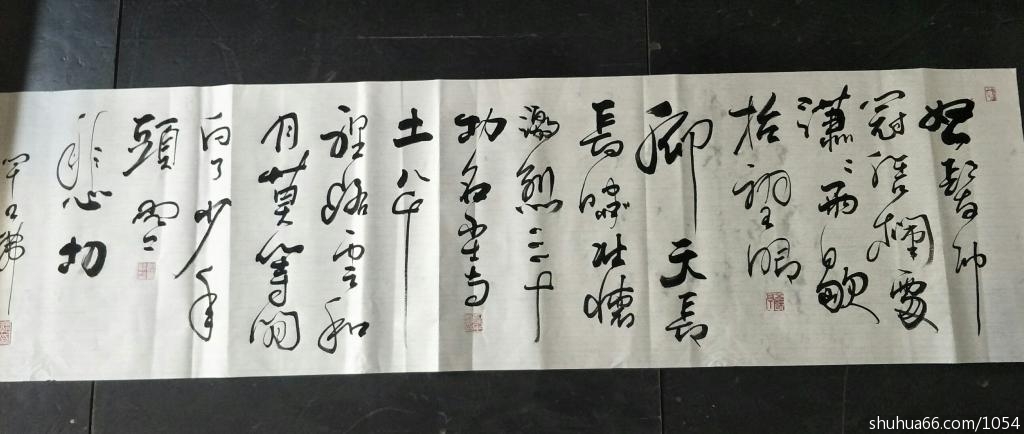 怒髮冲
冠憑欄處
瀟瀟雨歇
抬望眼
仰天長
長嘯壯懷
激烈三十
功名塵与
土八千
里路雲和
月莫等閒
白了少年
頭空
悲切
shuhua66.com/1054